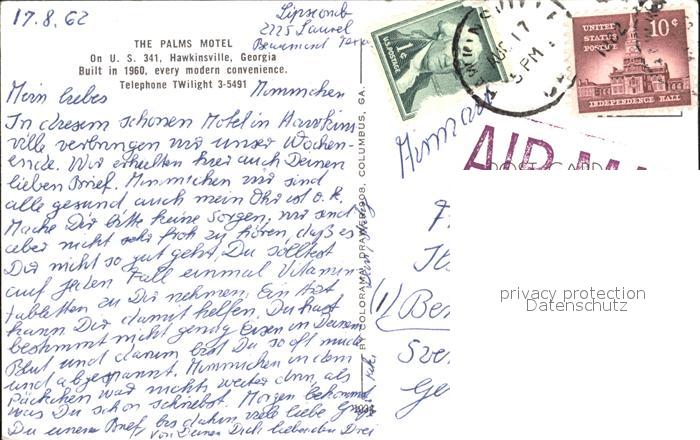 17.8.62
Lipscomb
2225 Laurel
Beaumont Texas
THE PALMS MOTEL
On U. S. 341, Hawkinsville, Georgia
Built in 1960, every modern convenience.
Telephone TWilight 3-5491
Mein liebes Mimmchen
In diesem schönen Motel in Hawkins
ville verbringen wir unser Wochen-
ende. Wir erhielten hier auch Deinen
lieben Brief. Mimmchen wir sind
alle gesund auch mein Ohr ist o.k.
Mache Dir bitte keine Sorgen, wir sind
aber nicht sehr froh zu hören, daß es
Dir nicht so gut geht. Du solltest
auf jeden Fall einmal Vitamin
tabletten zu Dir nehmen. Ein Arzt
kann Dir damit helfen. Du hast
bestimmt nicht genug Eisen in Deinem
Blut und darum bist Du so oft müde
und abgespannt. Mimmchen in dem
Päckchen war nichts weiter drin, als
was Du schon schriebst. Morgen bekommst
Du einen Brief, bis dahin viele liebe Grüße
von Deinen Dich liebenden Drei
BY COLORAMA, DRAWER 908, COLUMBUS, GA.
U.S. POSTAGE
1¢
AUG 17
PM
UNITED
STATES
POSTAGE
10¢
INDEPENDENCE HALL
Airmail
AIR MAIL
POST CARD
(1)
Be
privacy protection
Datenschutz